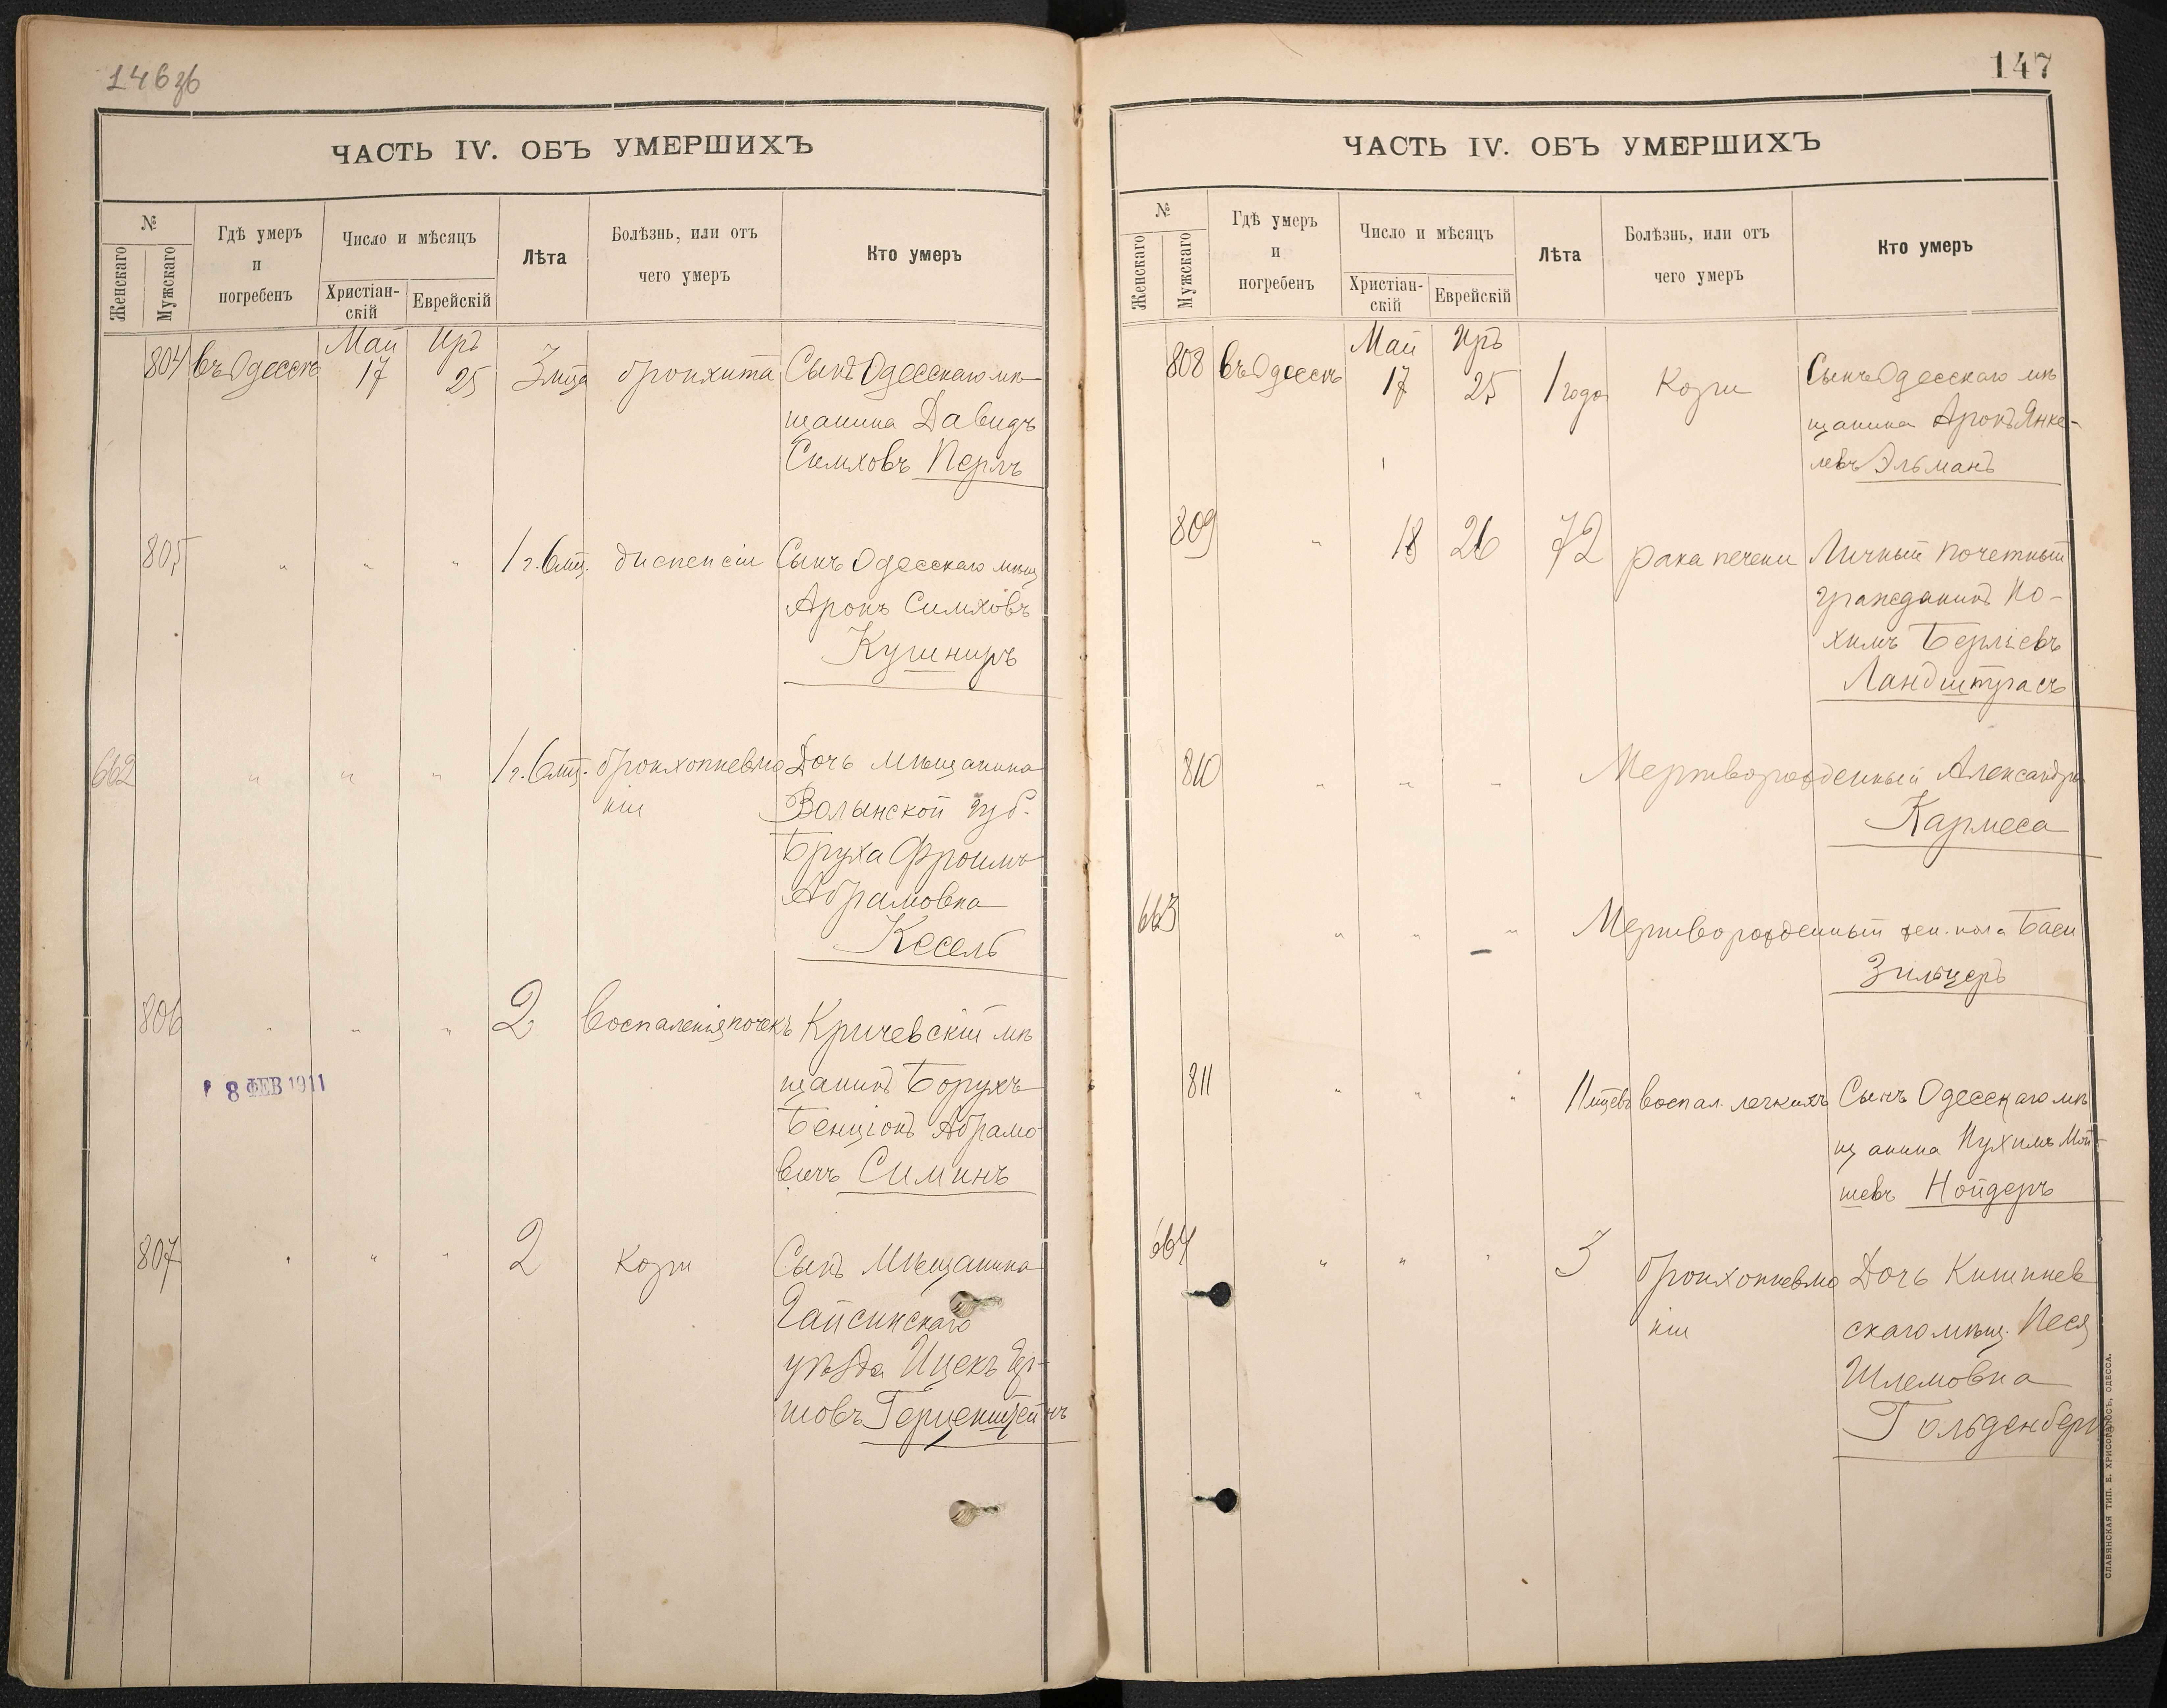 146 зб
ЧАСТЬ IV. ОБЪ УМЕРШИХЪ
№
Женскаго
Мужскаго
Гдѣ умеръ
и
погребенъ
Число и мѣсяцъ
Христіан-
скій
Еврейскій
Лѣта
Болѣзнь, или отъ
чего умеръ
Кто умеръ
Май Иръ
804 въ Одессѣ 17 25 3 мца бронхита Сынъ Одесскаго мѣ-
щанина Давидъ
Симховъ Перлъ
805 " " " 1 г. 6 мц. диспепсіи Сынъ Одесскаго мѣщ
Аронъ Симховъ
Кушниръ
662 " " " 1 г. 6 мц. бронхопневмо Дочь мѣщанина
ніи Волынской губ.
Бруха Фроимъ
Абрамовна
Кесель
806 " " " 2 воспаленія почекъ Кричевскій мѣ
щанинъ Борухъ
Бенціонъ Абрамо
вичъ Симинъ
8 ФЕВ 1911
807 " " " 2 Кори Сынъ мѣщанина
Гайсинскаго
уѣзда Ицекъ Гер-
шовъ Герценштейнъ
147
ЧАСТЬ IV. ОБЪ УМЕРШИХЪ
№
Женскаго
Мужскаго
Гдѣ умеръ
и
погребенъ
Число и мѣсяцъ
Христіан-
скій
Еврейскій
Лѣта
Болѣзнь, или отъ
чего умеръ
Кто умеръ
Май Иръ
808 въ Одессѣ 17 25 1 года Кори Сынъ Одесскаго мѣ
щанина Аронъ Янке-
левъ Эльманъ
809 " 18 26 72 рака печени Личный почетный
гражданинъ Ио-
химъ Берліевъ
Ландштрасъ
810 " " " Мертворожденный Александра
Кармеса
663 " " " Мертворожденный жен. пола Баси
Зильцеръ
811 " " " 11 мцевъ воспал. легкихъ Сынъ Одесскаго мѣ
щанина Нухимъ Мой-
шевъ Нойдеръ
664 " " " 3 бронхопневмо Дочь Кишинев
ніи скаго мѣщ. Песя
Шлемовна
Гольденбергъ
СЛАВЯНСКАЯ ТИП. Е. ХРИСОГЕЛОСЪ, ОДЕССА.